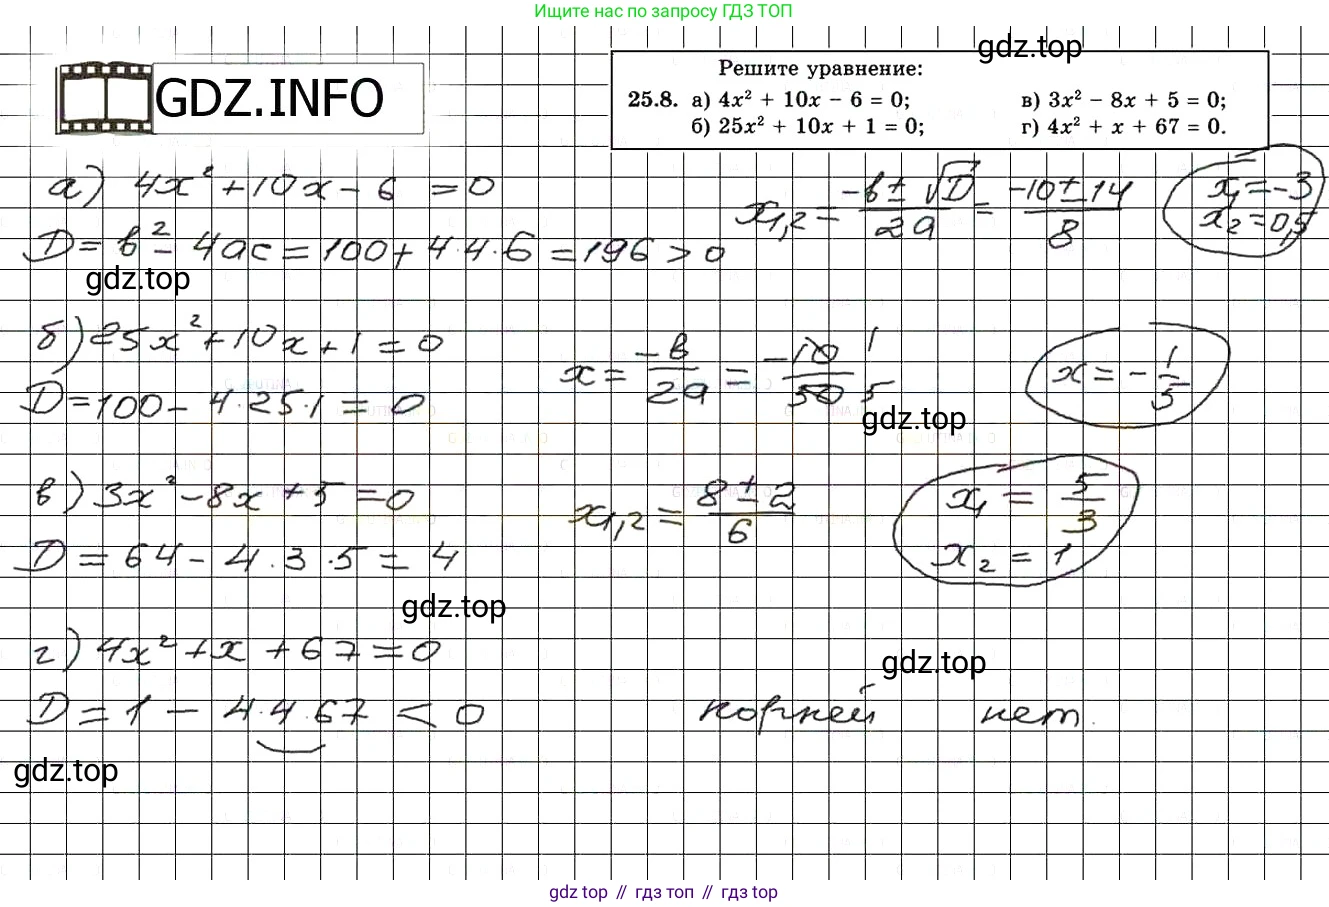 Ищите нас по запросу ГДЗ ТОП
GDZ.INFO
gdz.top
Решите уравнение:
25.8. а) 4x² + 10x − 6 = 0; в) 3x² − 8x + 5 = 0;
б) 25x² + 10x + 1 = 0; г) 4x² + x + 67 = 0.
а) 4x² + 10x − 6 = 0
D = b² − 4ac = 100 + 4·4·6 = 196 > 0
x₁,₂ = (−b ± √D)/2a = (−10 ± 14)/8
x₁ = −3
x₂ = 0,5
gdz.top
б) 25x² + 10x + 1 = 0
D = 100 − 4·25·1 = 0
x = −b/2a = −10/50 1 5
x = −1/5
gdz.top
в) 3x² − 8x + 5 = 0
D = 64 − 4·3·5 = 4
x₁,₂ = (8 ± 2)/6
x₁ = 5/3
x₂ = 1
gdz.top
г) 4x² + x + 67 = 0
gdz.top
D = 1 − 4·4·67 < 0 корней нет.
gdz.top
gdz top // гдз топ // гdz top